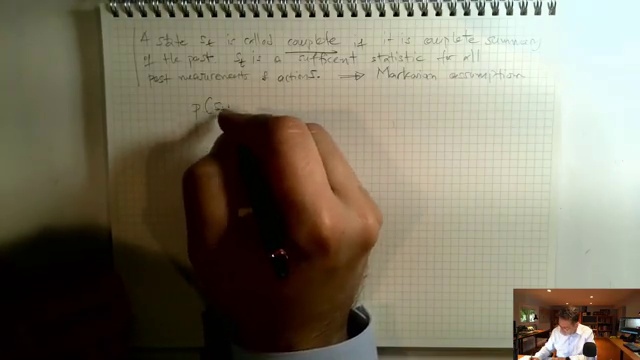 A state st is called complete if it is complete summary
of the past st is a sufficent statistic for all
past measurements & actions. ⟹ Markovian assumption
p(z